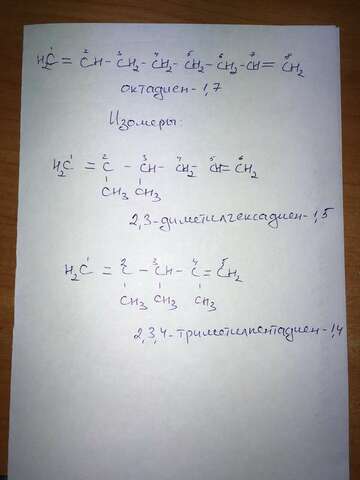 H₂C¹ = CH² - CH₂³ - CH₂⁴ - CH₂⁵ - CH₂⁶ - CH⁷ = CH₂⁸
октадиен-1,7
Изомеры:
H₂C¹ = C² - CH³ - CH₂⁴ - CH⁵ = CH₂⁶
CH₃ CH₃
2,3-диметилгексадиен-1,5
H₂C¹ = C² - CH³ - C⁴ = CH₂⁵
CH₃ CH₃ CH₃
2,3,4-триметилпентадиен-1,4